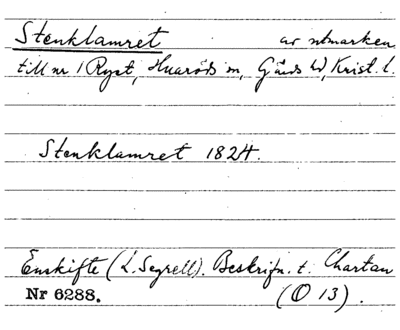 Stenklamret av utmarken
till nr 1 Ryet, Huaröds sn, Gärds hd, Krist. l.
Stenklamret 1824.
Enskifte (L. Segrell). Beskrifn. t. Chartan
Nr 6288. (O 13).